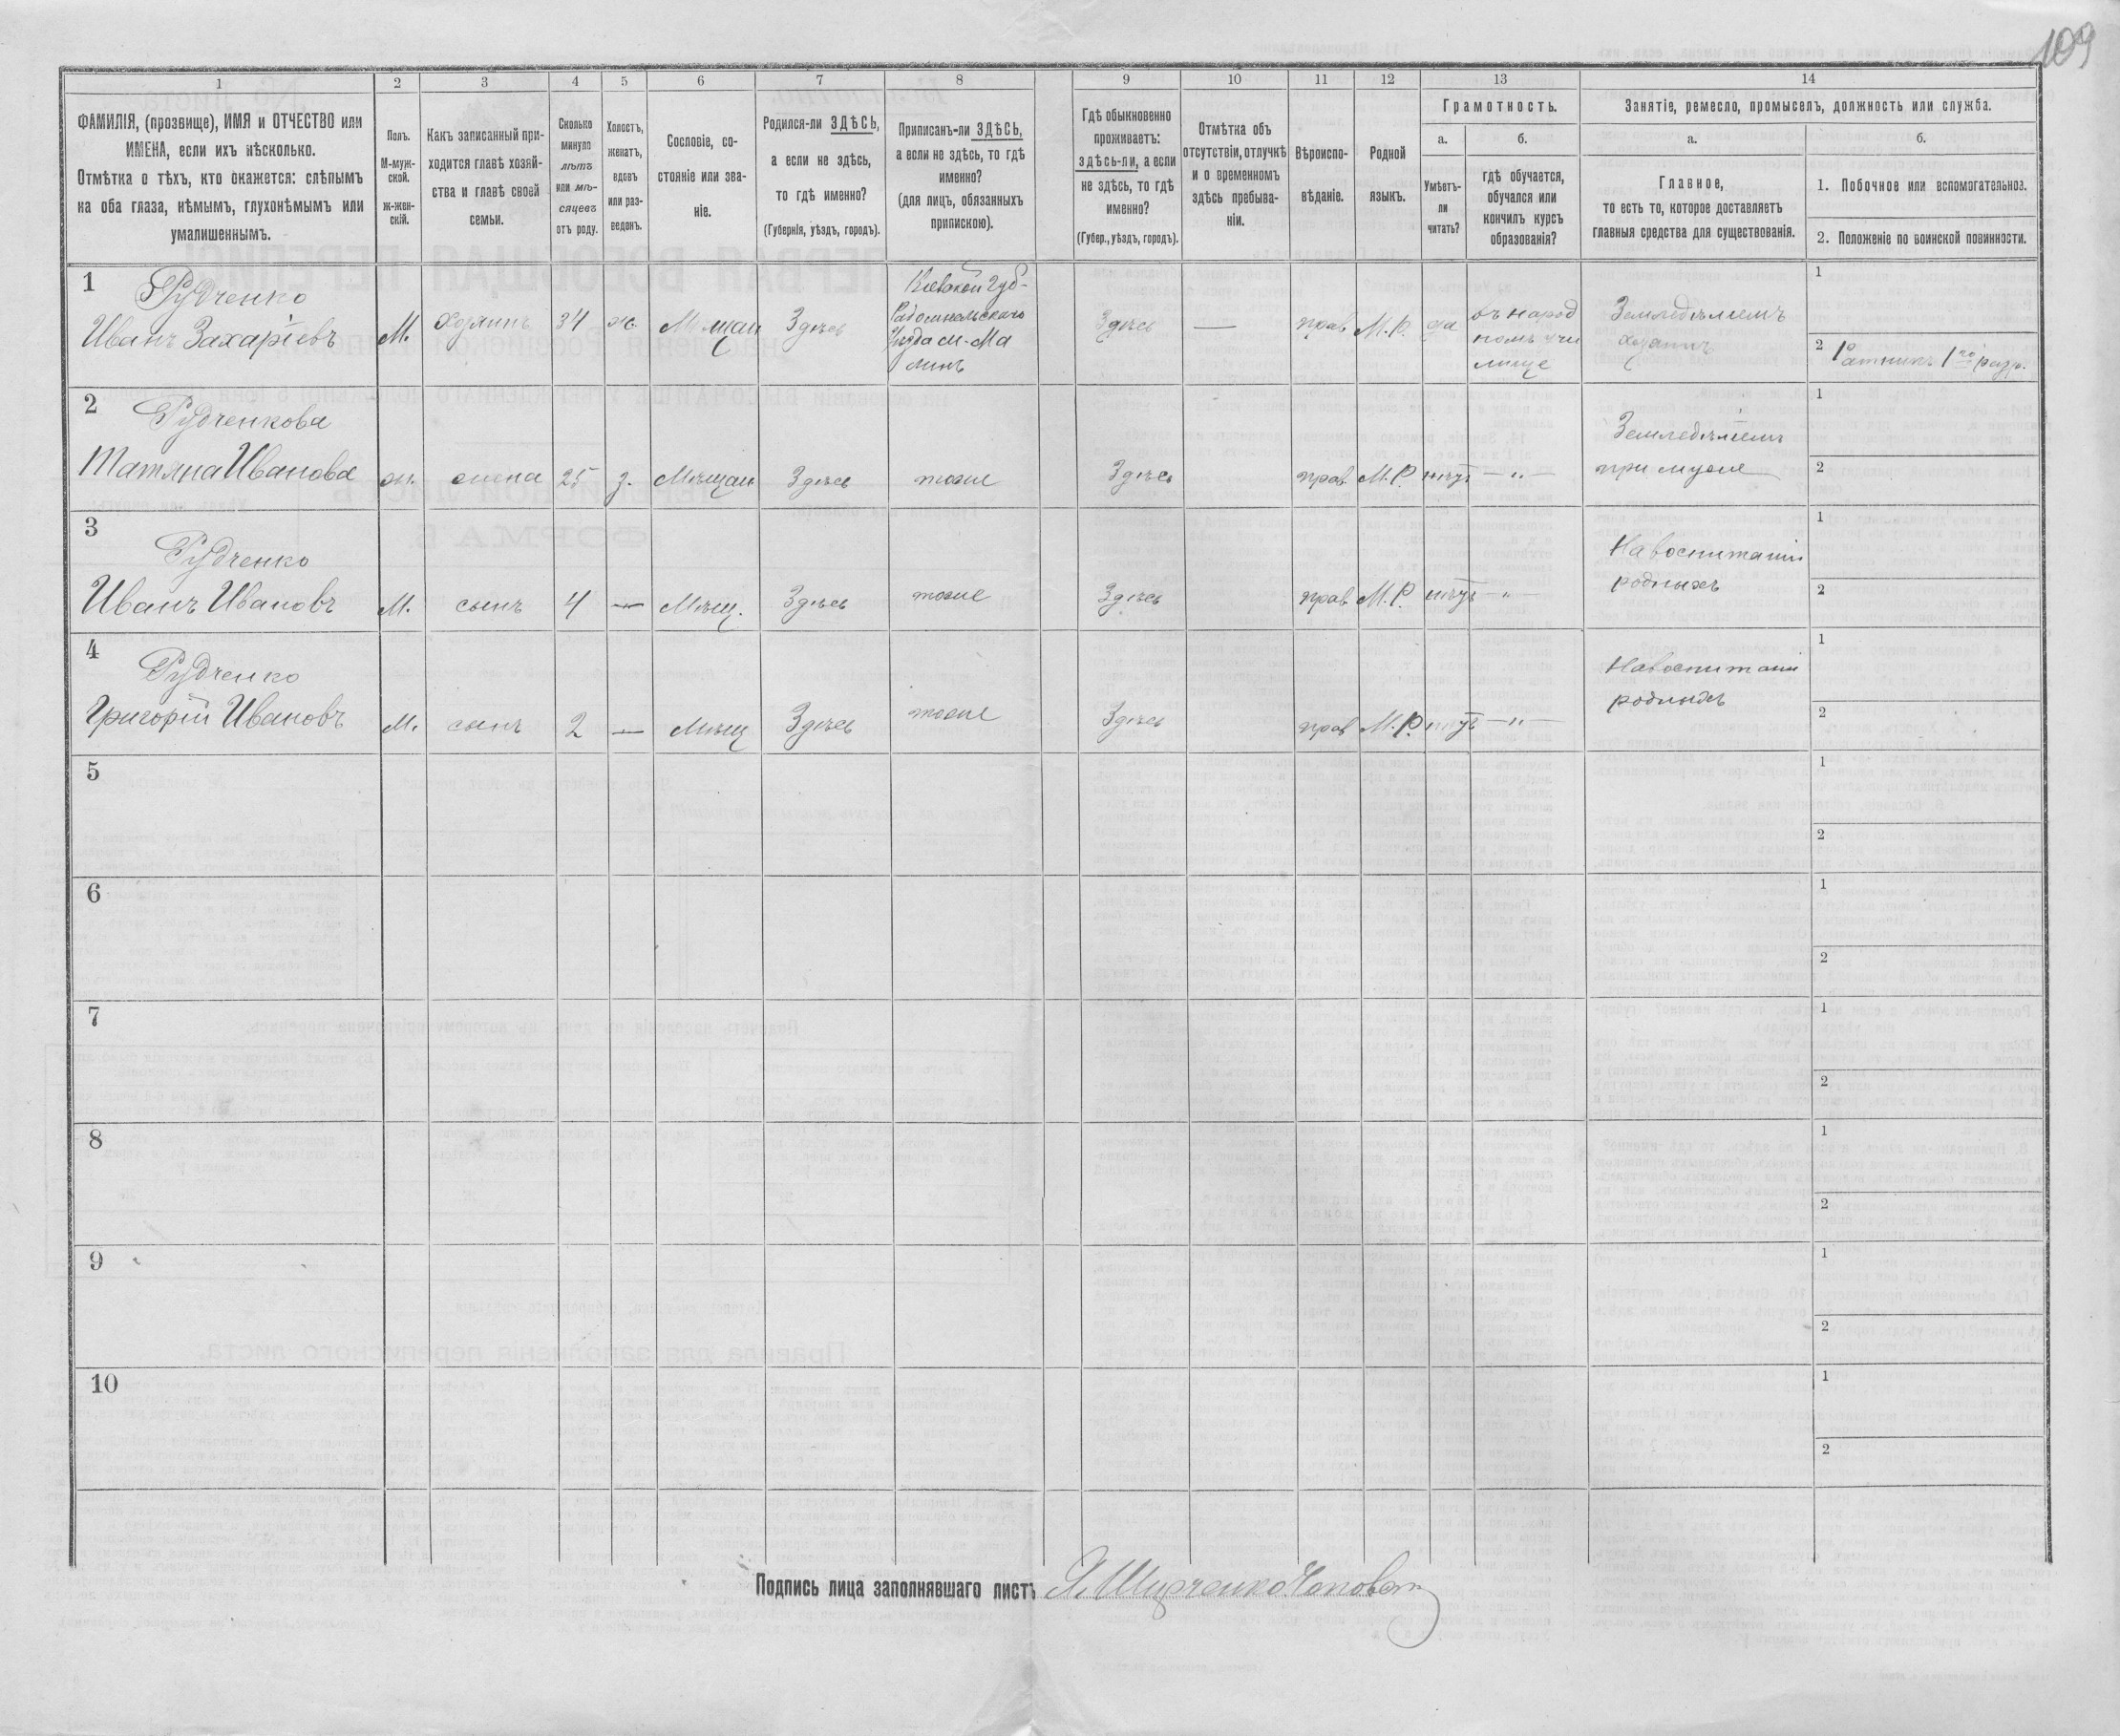 109
1
2
3
4
5
6
7
8
9
10
11
12
13
14
ФАМИЛІЯ, (прозвище), ИМЯ и ОТЧЕСТВО или
ИМЕНА, если ихъ нѣсколько.
Отмѣтка о тѣхъ, кто окажется: слѣпымъ
на оба глаза, нѣмымъ, глухонѣмымъ или
умалишеннымъ.
Полъ.
М-муж-
ской.
ж-жен-
скій.
Какъ записанный при-
ходится главѣ хозяй-
ства и главѣ своей
семьи.
Сколько
минуло
лѣтъ
или мѣ-
сяцевъ
отъ роду.
Холостъ,
женатъ,
вдовъ
или раз-
веденъ.
Сословіе, со-
стояніе или зва-
ніе.
Родился-ли ЗДѢСЬ,
а если не здѣсь,
то гдѣ именно?
(Губернія, уѣздъ, городъ).
Приписанъ-ли ЗДѢСЬ,
а если не здѣсь, то гдѣ
именно?
(для лицъ, обязанныхъ
припискою).
Гдѣ обыкновенно
проживаетъ:
здѣсь-ли, а если
не здѣсь, то гдѣ
именно?
(Губер., уѣздъ, городъ).
Отмѣтка объ
отсутствіи, отлучкѣ
и о временномъ
здѣсь пребыва-
ніи.
Вѣроиспо-
вѣданіе.
Родной
языкъ.
Грамотность.
а.
Умѣетъ-
ли
читать?
б.
гдѣ обучается,
обучался или
кончилъ курсъ
образованія?
Занятіе, ремесло, промыселъ, должность или служба.
а.
Главное,
то есть то, которое доставляетъ
главныя средства для существованія.
б.
1. Побочное или вспомогательное.
2. Положеніе по воинской повинности.
1
Рудченко
Иванъ Захаріевъ
М.
хозяинъ
34
ж.
Мѣщан
Здѣсь
Кіевской губ-
Радомысльскаго
уѣзда м. Ма
линъ
Здѣсь
—
прав
М.Р.
да
въ народ
номъ учи
лище
Земледѣліемъ
хозяинъ
1
2 Ратникъ 1го разр.
2
Рудченкова
Татяна Иванова
ж.
жена
25
з.
Мѣщан
Здѣсь
тоже
Здѣсь
прав
М.Р.
нѣтъ
— „ —
Земледѣліемъ
при мужѣ
1
2
3
Рудченко
Иванъ Ивановъ
М.
сынъ
4
—
Мѣщ.
Здѣсь
тоже
Здѣсь
прав
М.Р.
нѣтъ
— „ —
На воспитаніи
родныхъ
1
2
4
Рудченко
Григорій Ивановъ
М.
сынъ
2
—
Мѣщ
Здѣсь
тоже
Здѣсь
прав
М.Р.
нѣтъ
— „ —
На воспитаніи
родныхъ
1
2
5
1
2
6
1
2
7
1
2
8
1
2
9
1
2
10
1
2
Подпись лица заполнявшаго листъ